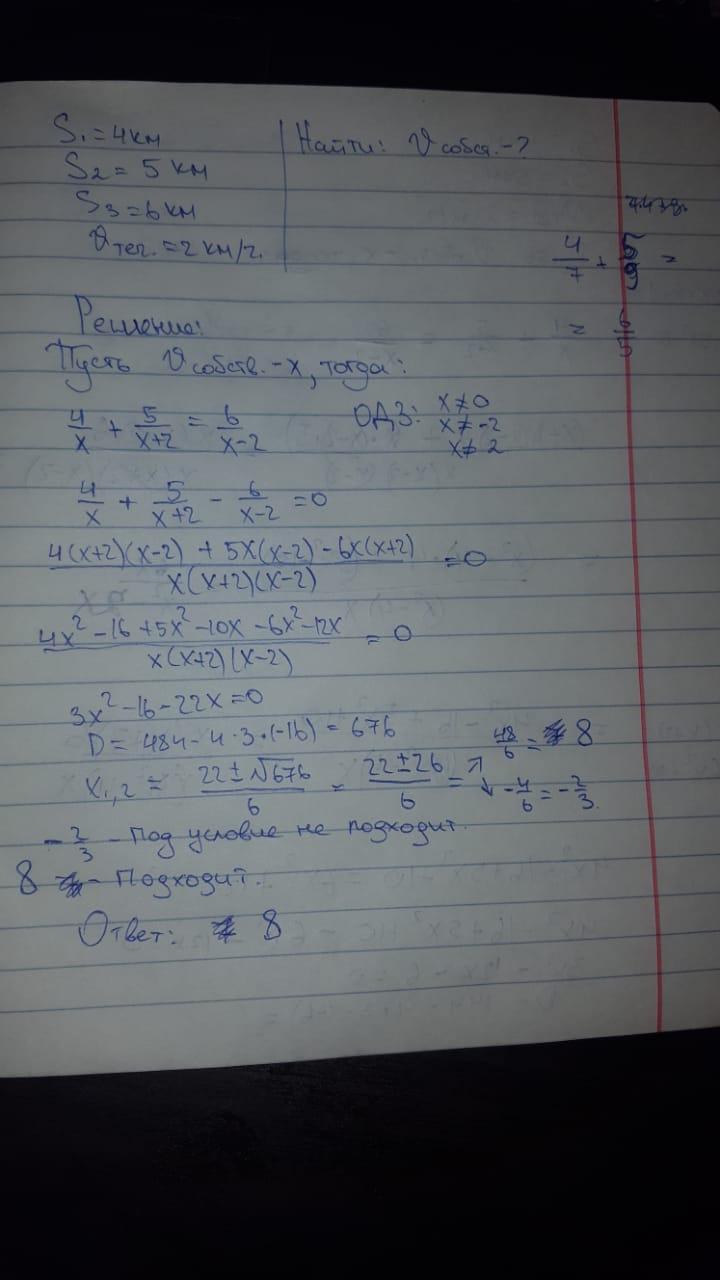 S₁ = 4 км
Найти: V собств. - ?
S₂ = 5 км
S₃ = 6 км
V теч. = 2 км/ч.
4/7 + 5/9 =
= 6/5
Решение:
Пусть V собств. - x, тогда:
4/x + 5/(x+2) = 6/(x-2)
ОДЗ: x≠0
x≠-2
x≠2
4/x + 5/(x+2) - 6/(x-2) = 0
(4(x+2)(x-2) + 5x(x-2) - 6x(x+2))/(x(x+2)(x-2)) = 0
(4x² - 16 + 5x² - 10x - 6x² - 12x)/(x(x+2)(x-2)) = 0
3x² - 16 - 22x = 0
D = 484 - 4·3·(-16) = 676
x₁,₂ = (22 ± √676)/6 = (22 ± 26)/6 = ↗ 48/6 = 8
↓ -4/6 = -2/3.
-2/3 - Под условие не подходит.
8 - Подходит.
Ответ: 8